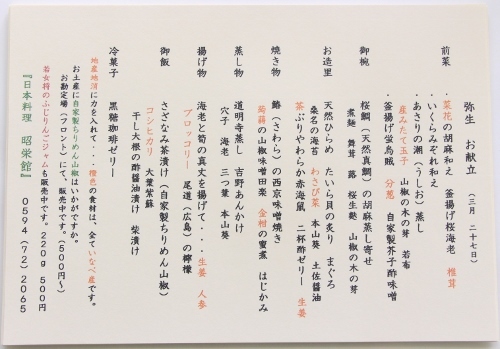 弥生　お献立　（三月　二十七日）
前菜　・菜花の胡麻和え　釜揚げ桜海老　椎茸
・いくらみぞれ和え
・あさりの潮（うしお）蒸し
産みたて玉子　山椒の木の芽　若布
・釜揚げ蛍烏賊　分葱　自家製芥子酢味噌
御椀　桜鯛（天然真鯛）の胡麻蒸し寄せ
煮麺　舞茸　蕗　桜生麩　山椒の木の芽
お造里　天然ひらめ　たいら貝の炙り　まぐろ
桑名の海苔　わさび菜　本山葵　土佐醤油
茶ぶりやわらか赤海鼠　二杯酢ゼリー　生姜
焼き物　鰆（さわら）の西京味噌焼き
蒟蒻の山椒味噌田楽　金柑の蜜煮　はじかみ
蒸し物　道明寺蒸し　吉野あんかけ
穴子　海老　三つ葉　本山葵
揚げ物　海老と筍の真丈を揚げて・・・生姜　人参
ブロッコリー　尾道（広島）の檸檬
御飯　さざなみ茶漬け（自家製ちりめん山椒）
コシヒカリ　大葉紫蘇
干し大根の酢醤油漬け　柴漬け
冷菓子　黒糖珈琲ゼリー
地産地消に力を入れて・・・橙色の食材は、全ていなべ産です。
お土産に自家製ちりめん山椒はいかがですか。
お勘定場（フロント）にて、販売中です。（５００円～）
若女将のふじりんごジャムも販売中です。２２０ｇ　５００円
『日本料理　昭栄館』　０５９４（７２）２０６５